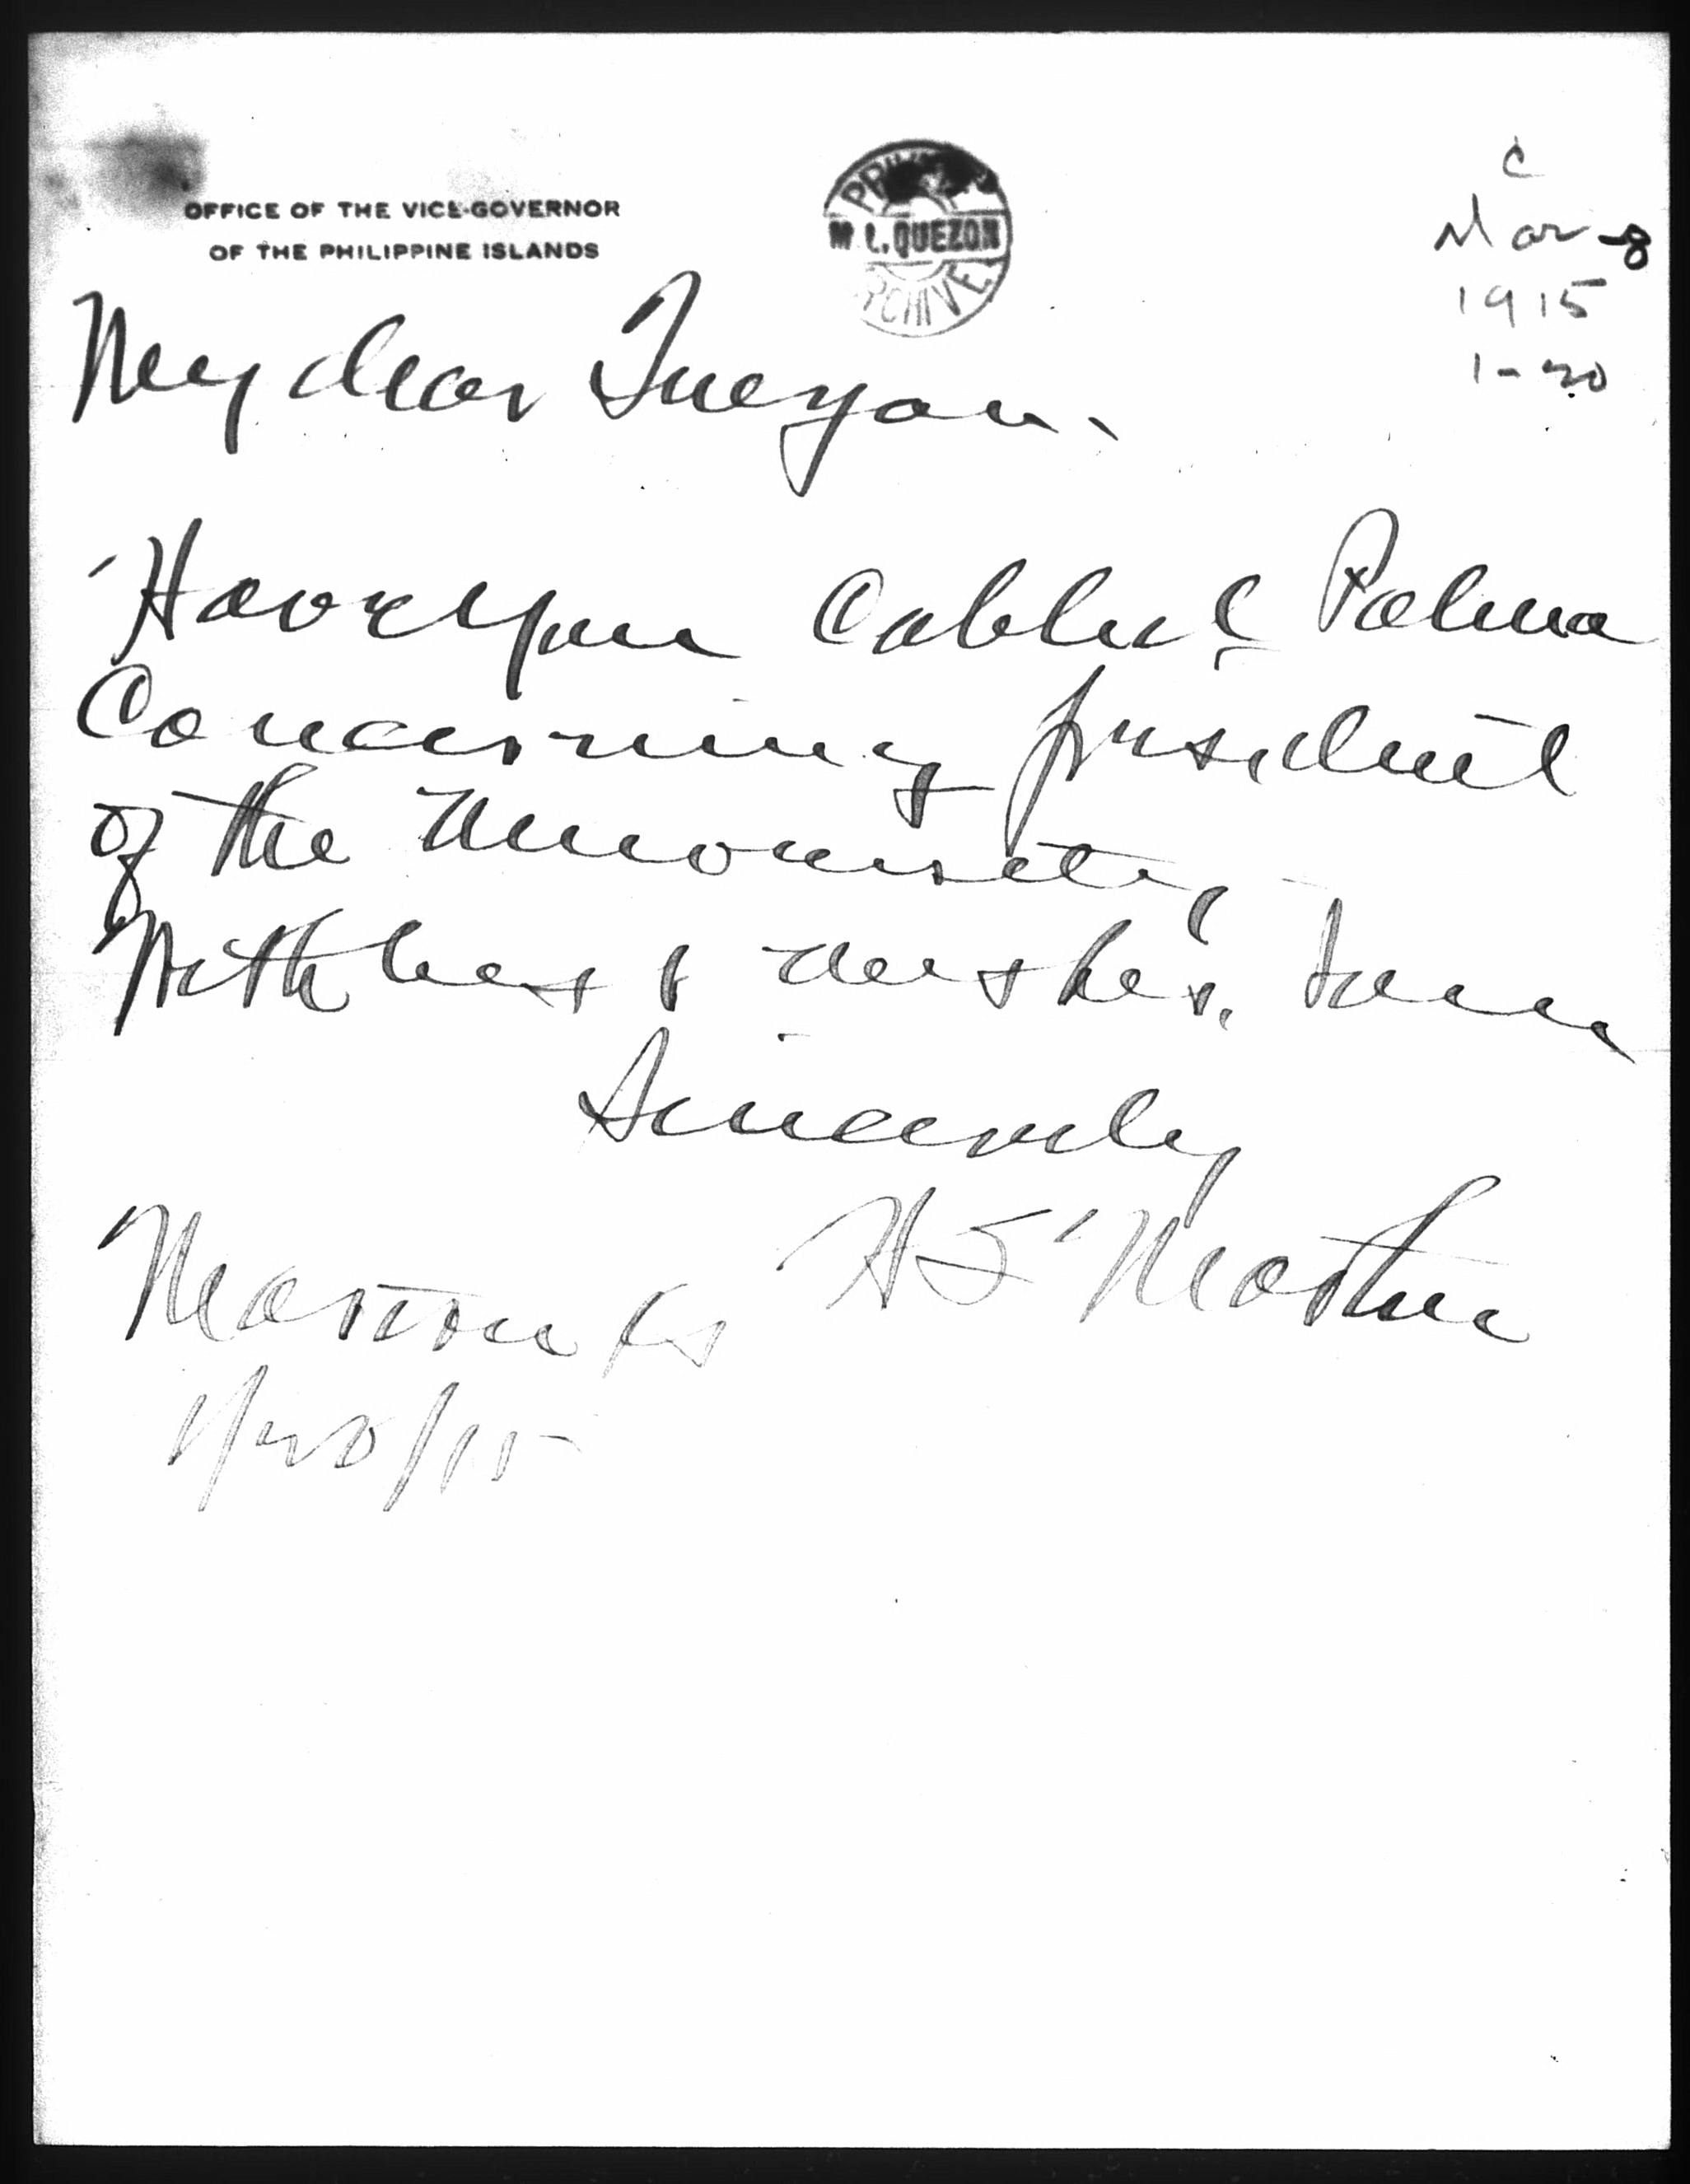 OFFICE OF THE VICE-GOVERNOR
OF THE PHILIPPINE ISLANDS
M. L. QUEZON
ARCHIVE
C
Mar-8
1915
1-20
My dear Quezon.
Have you cabled Palma
concerning president
of the University,
With best wishes, I am
Sincerely
HS Martin
1/20/15